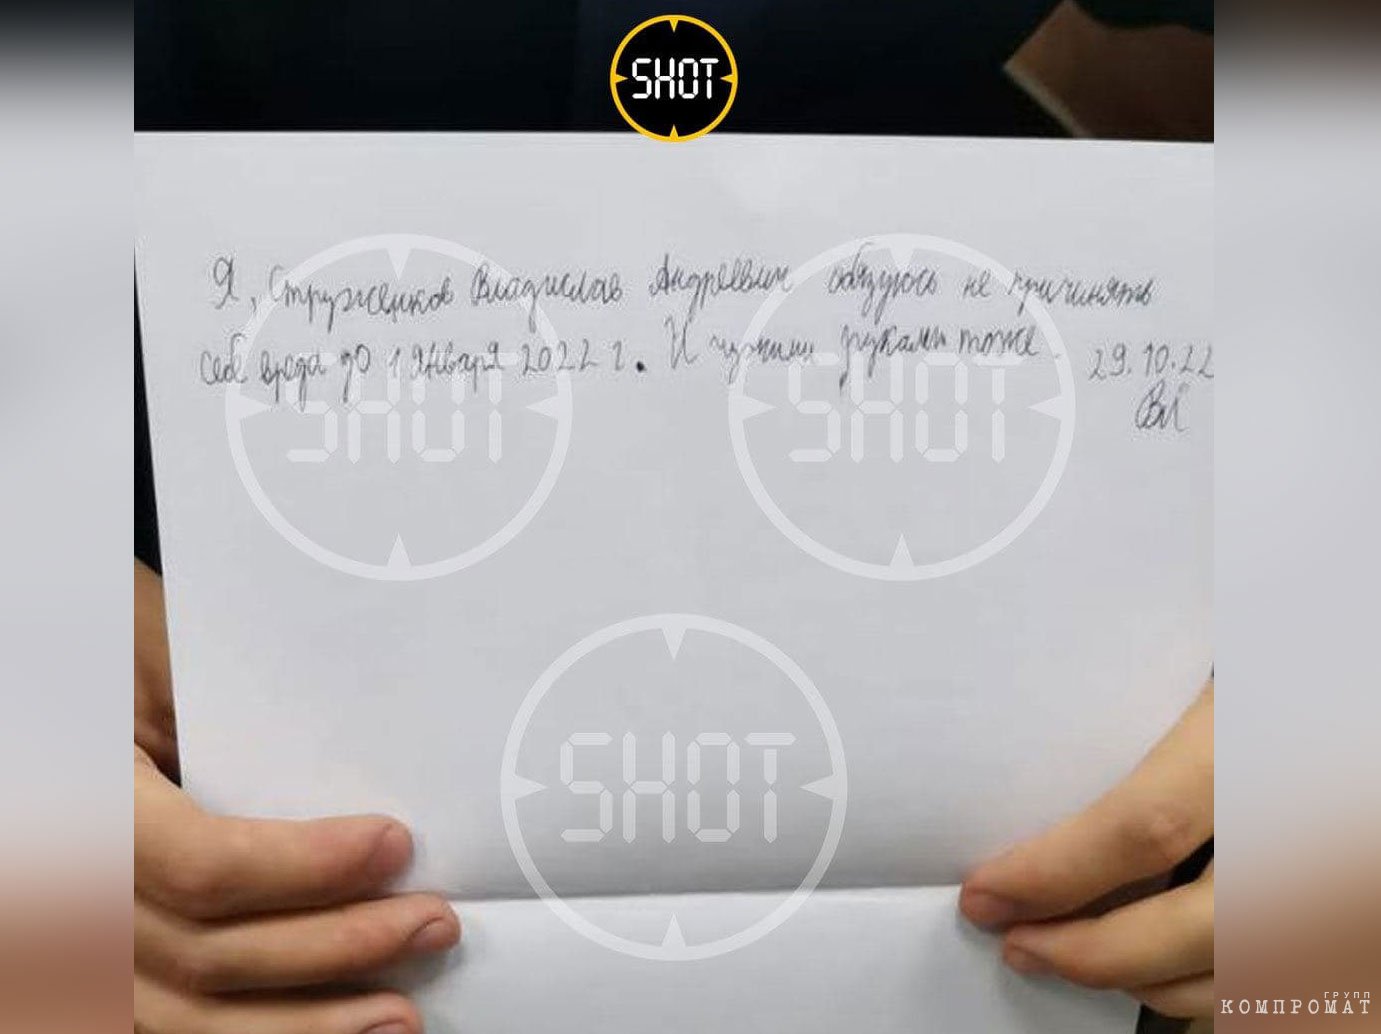 SHOT
Я, Струженков Владислав Андреевич обязуюсь не причинять
себе вреда до 1 января 2022 г. И чужими руками тоже. 29.10.22
ВМ
SHOT
SHOT
SHOT
ГРУПП
КОМПРОМАТ